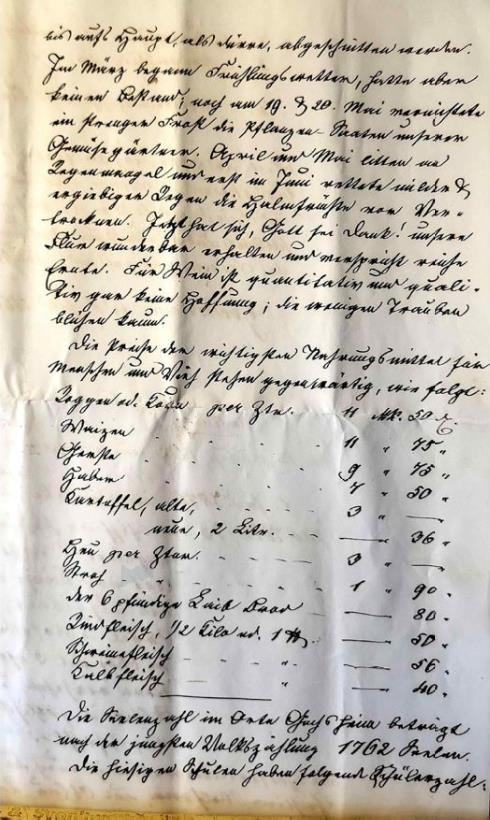 bis aufs Haupt, als dürre, abgeschnitten werden.
Im März begann Frühlingswetter, hatte aber
keinen Bestand; noch am 19. & 20. Mai vernichtete
ein strenger Frost die Pflanzen-Saaten unserer
Gemüsegärtner. April und Mai litten an
Regenmangel und erst im Juni rettete milder &
ergiebiger Regen die Halmfrüchte vor Ver-
trocknen. Jetzt hat sich, Gott sei Dank! unsere
Flur wunderbar erhalten und verspricht reiche
Ernte. Für Wein ist quantitativ und quali-
tiv gar keine Hoffnung; die wenigen Trauben
blühen kaum.
Die Preise der wichtigsten Nahrungsmittel für
Menschen und Vieh stehen gegenwärtig, wie folgt:
Roggen od. Korn per Ztr. 11 Mk. 50
Waizen 11 " 75 "
Gerste 9 " 75 "
Haber 7 " 50 "
Kartoffel, alte, 3 " — "
neue, 2 Litr. — 36 "
Heu per Ztnr. 3 " — "
Stroh " " 1 " 90 "
der 6 pfündige Laib Brod — 80 "
Rindfleisch, 1/2 Kilo od. 1 ℔. — 50 "
Schweinefleisch " — 56 "
Kalbfleisch " — 40 "
Die Seelenzahl im Orte Gochsheim beträgt
nach der jüngsten Volkszählung 1762 Seelen.
Die hiesigen Schulen haben folgende Schülerzahl: